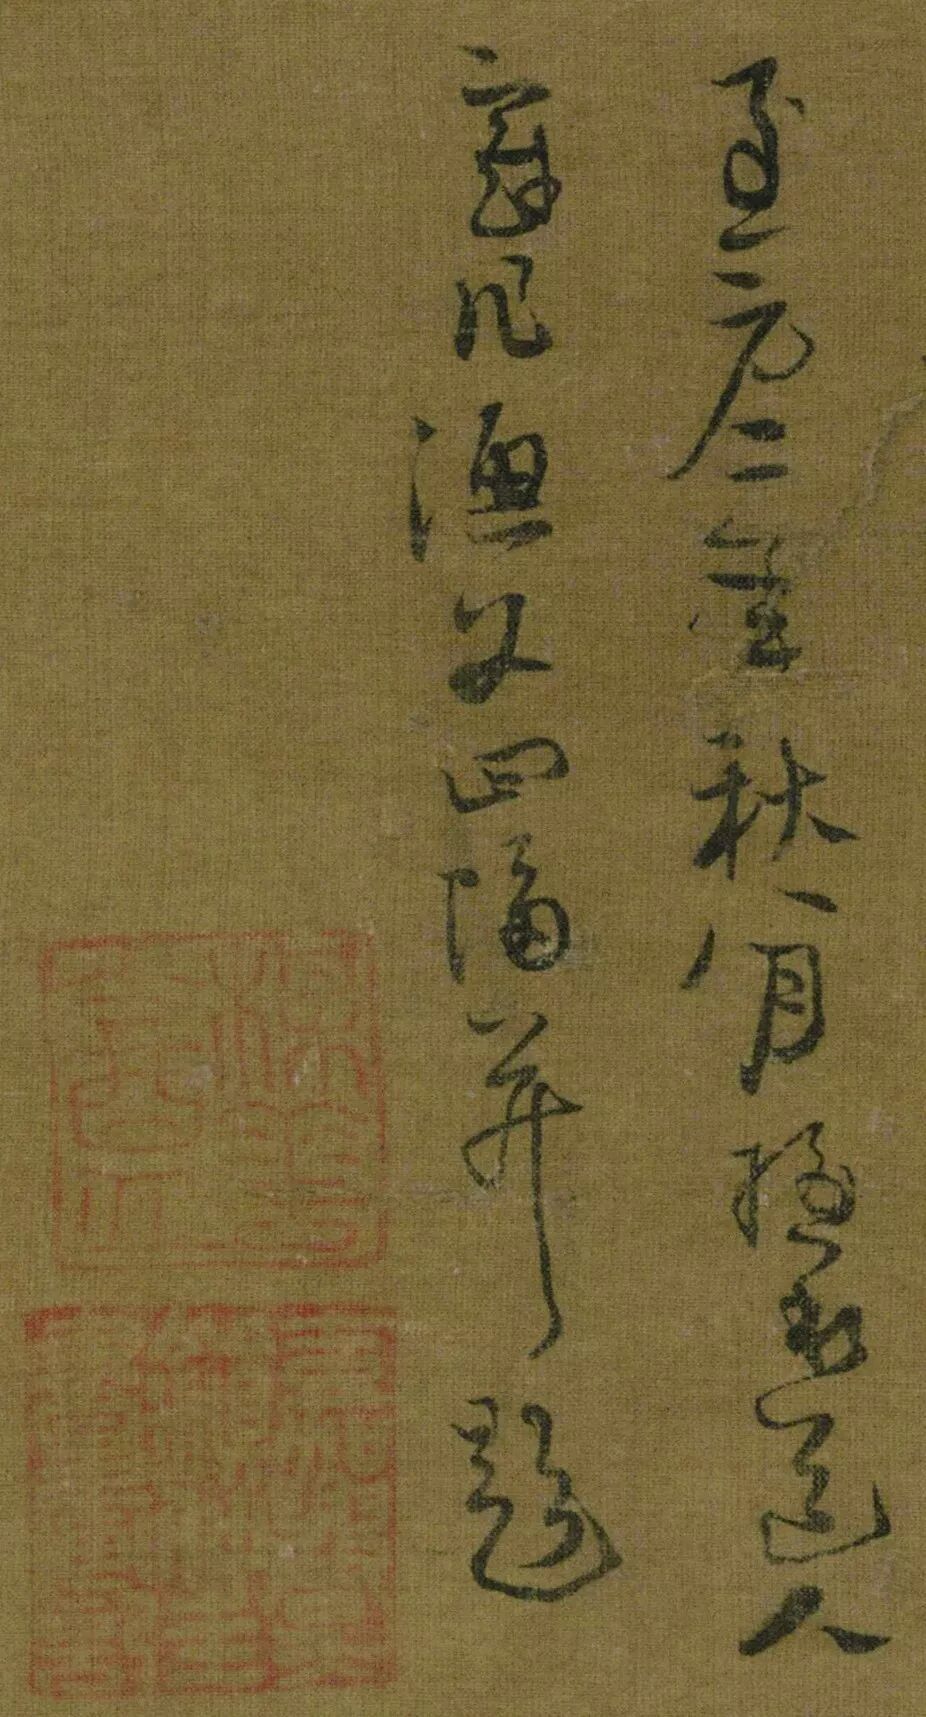 至元二年秋八月梅花道人
戲作漁父四幅并題